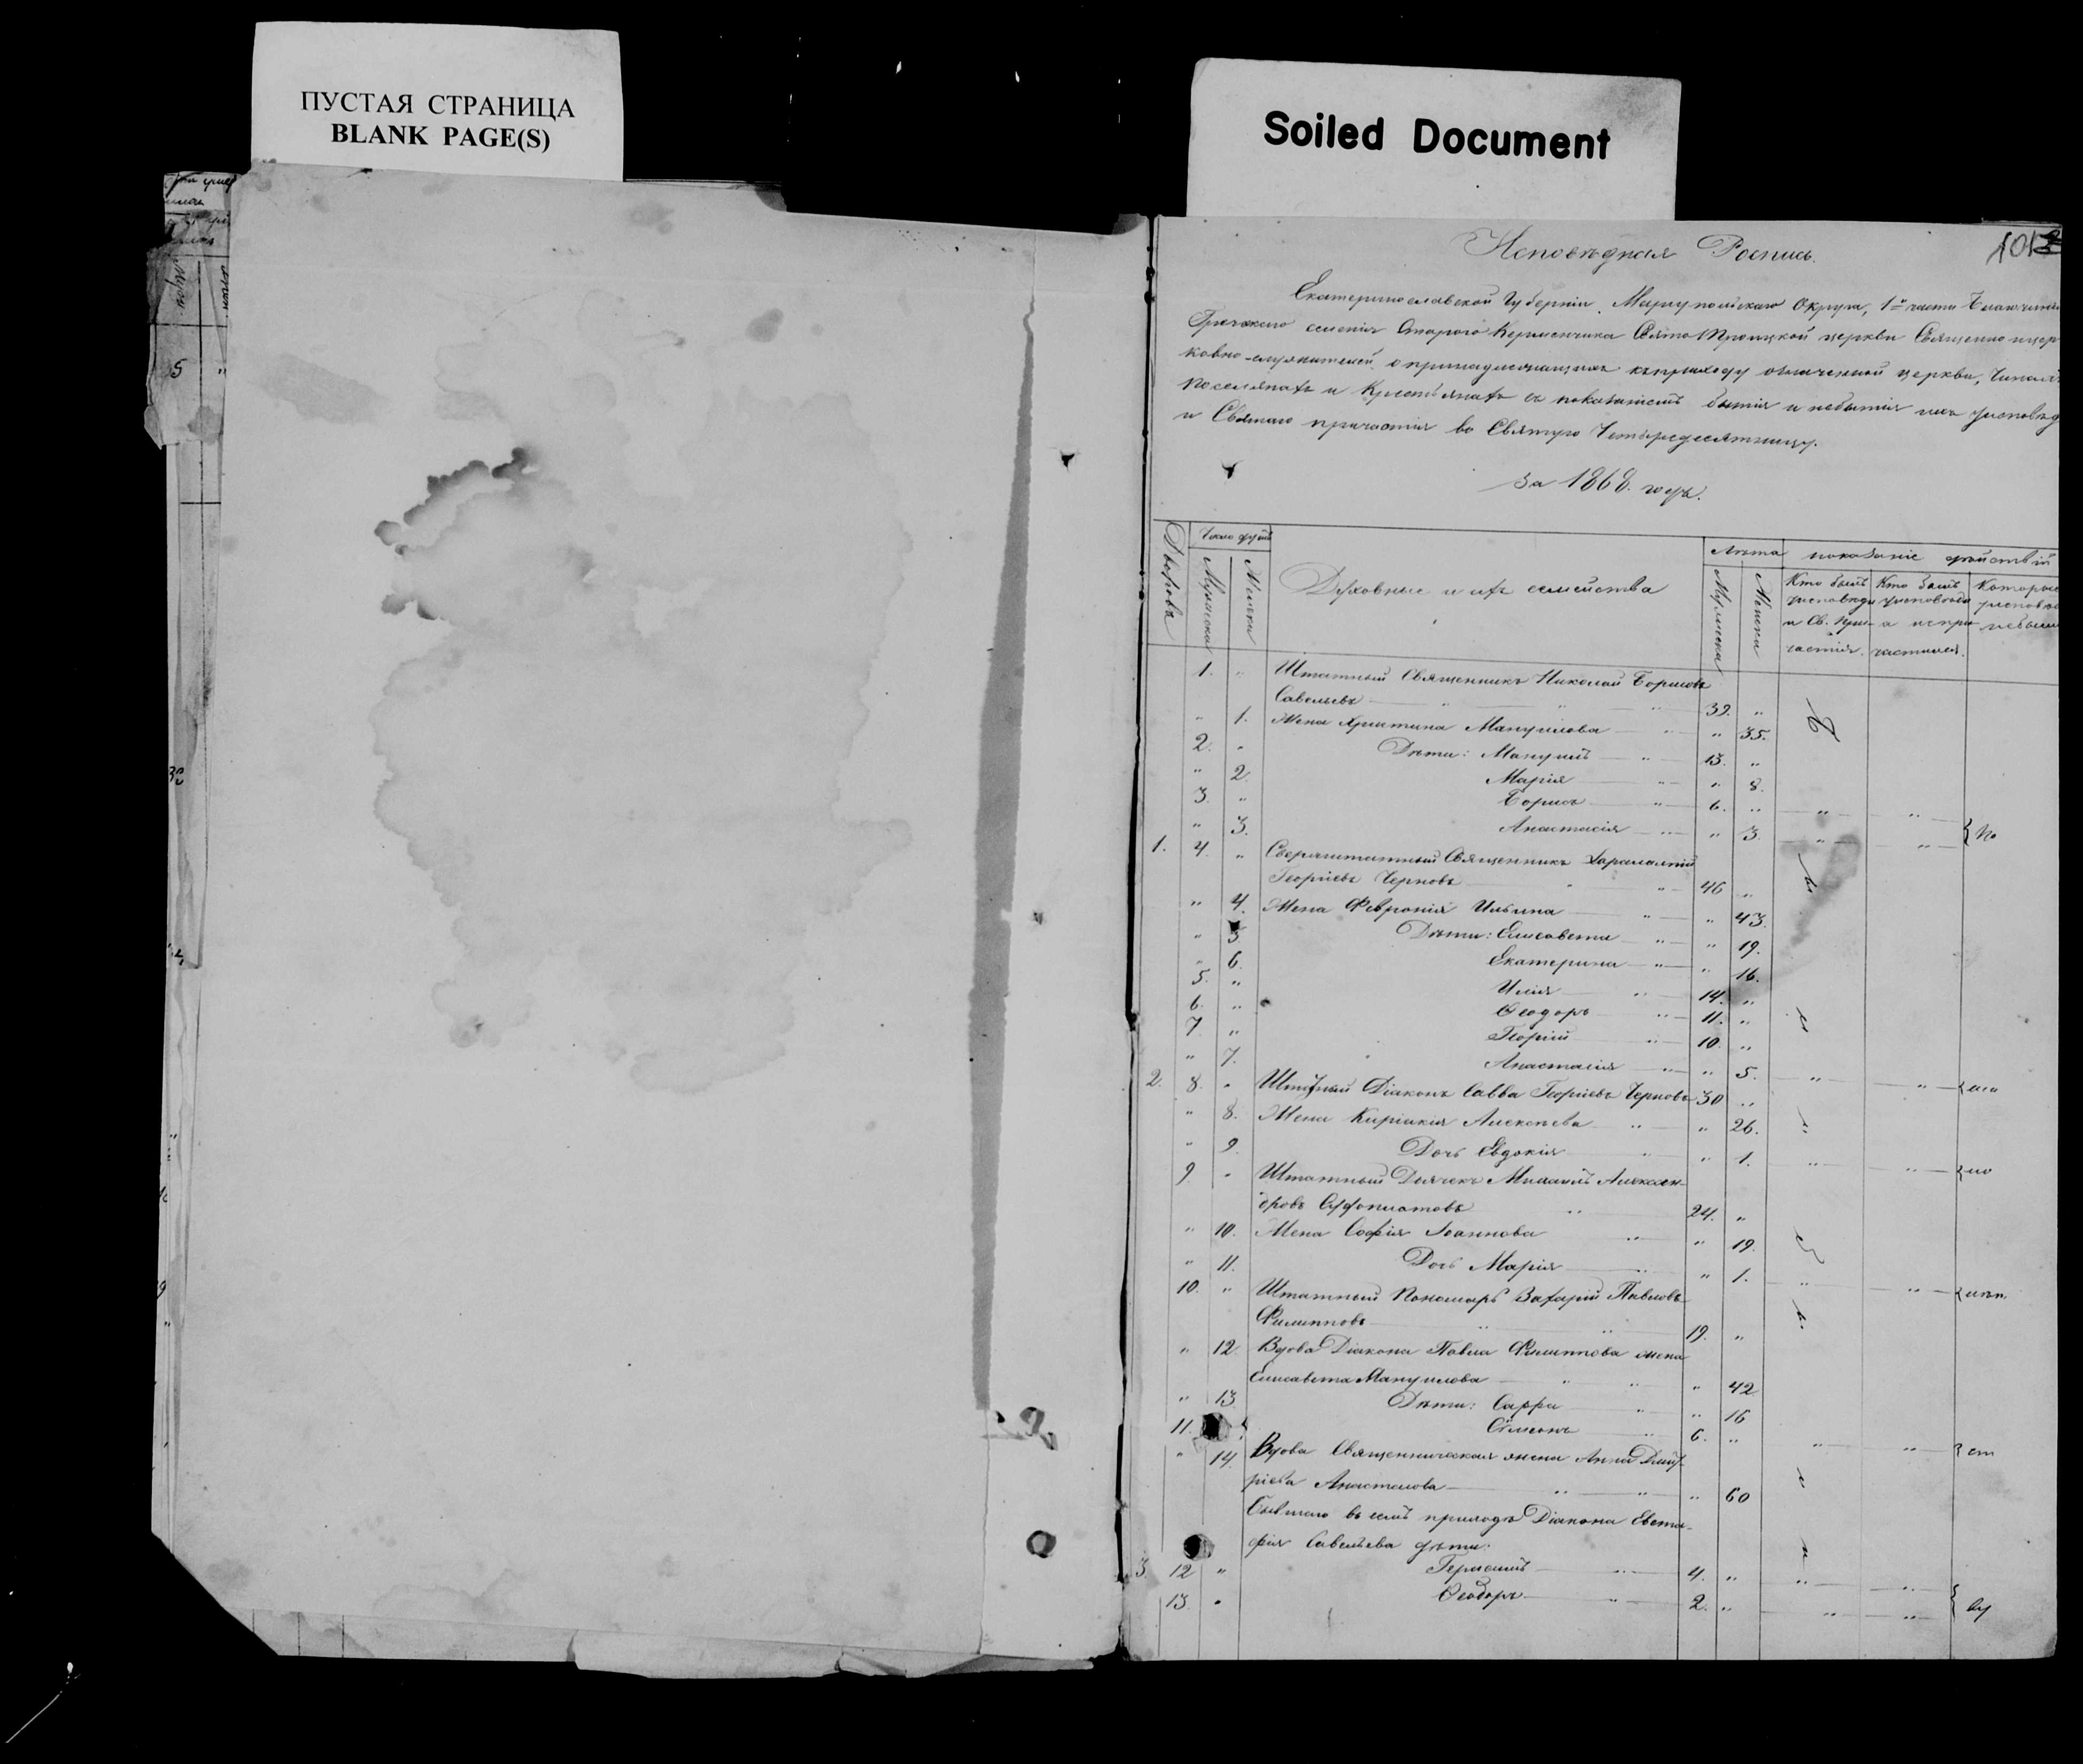 ПУСТАЯ СТРАНИЦА
BLANK PAGE(S)
Soiled Document
Исповѣдная Роспись.
Екатеринославской Губерніи, Маріупольскаго Округа, 1й части
Греческаго селенія Стараго Керменчика Свято Троицкой церкви Священно и цер
ковно-служителей о принадлежащихъ къ приходу означенной церкви,
Поселянахъ и Крестьянахъ съ показаніемъ бытія и небытія ихъ у исповѣд
и Святаго причастія во Святую Четыредесятницу.
За 1868. годъ.
Дворовъ Число душъ Мужеска Женски Духовные и ихъ семейства Лѣта Мужеска Женски показаніе дѣйствій
Кто былъ у исповѣди и Св. причастія. Кто былъ у исповѣди а не причастился. Которые у исповѣ небыли
1. " Штатный Священникъ Николай Борисовъ
Савельевъ 39. "
" 1. Жена Христина Мануилова " 35.
2. " Дѣти: Мануилъ 13. "
" 2. Марія " 8.
3. " Борисъ 6. "
" 3. Анастасія " 3. по
1. 4. " Сверхштатный Священникъ Харалампій
Георгіевъ Черновъ 46 "
" 4. Жена Февронія Ильина " 43.
" 5 Дѣти: Елисавета " 19.
" 6. Екатерина " 16.
5. " Илія 14. "
6. " Ѳеодоръ 11. "
7. " Георгій 10. "
" 7. Анастасія " 5.
2. 8. " Штатный Діаконъ Савва Георгіевъ Черновъ 30 "
" 8. Жена Кирикія Алексѣева " 26.
" 9. Дочь Евдокія " 1.
9. " Штатный Дьячекъ Михаилъ Алексан-
дровъ 24. "
" 10. Жена Софія Іоаннова " 19.
" 11. Дочь Марія " 1.
10. " Штатный Пономарь Захарій Павловъ
Филипповъ 19. "
" 12. Вдова Діакона Павла Филиппова жена
Елисавета Мануилова " 42
" 13. Дѣти: Сарра " 16
11. Симеонъ 6. "
" 14. Вдова Священническая жена Анна Дмит-
ріева " 60
Бывшаго въ семъ приходѣ Діакона Евста-
фія Савельева дѣти:
3. 12 " Герасимъ 4. "
13. " Ѳеодоръ 2. "